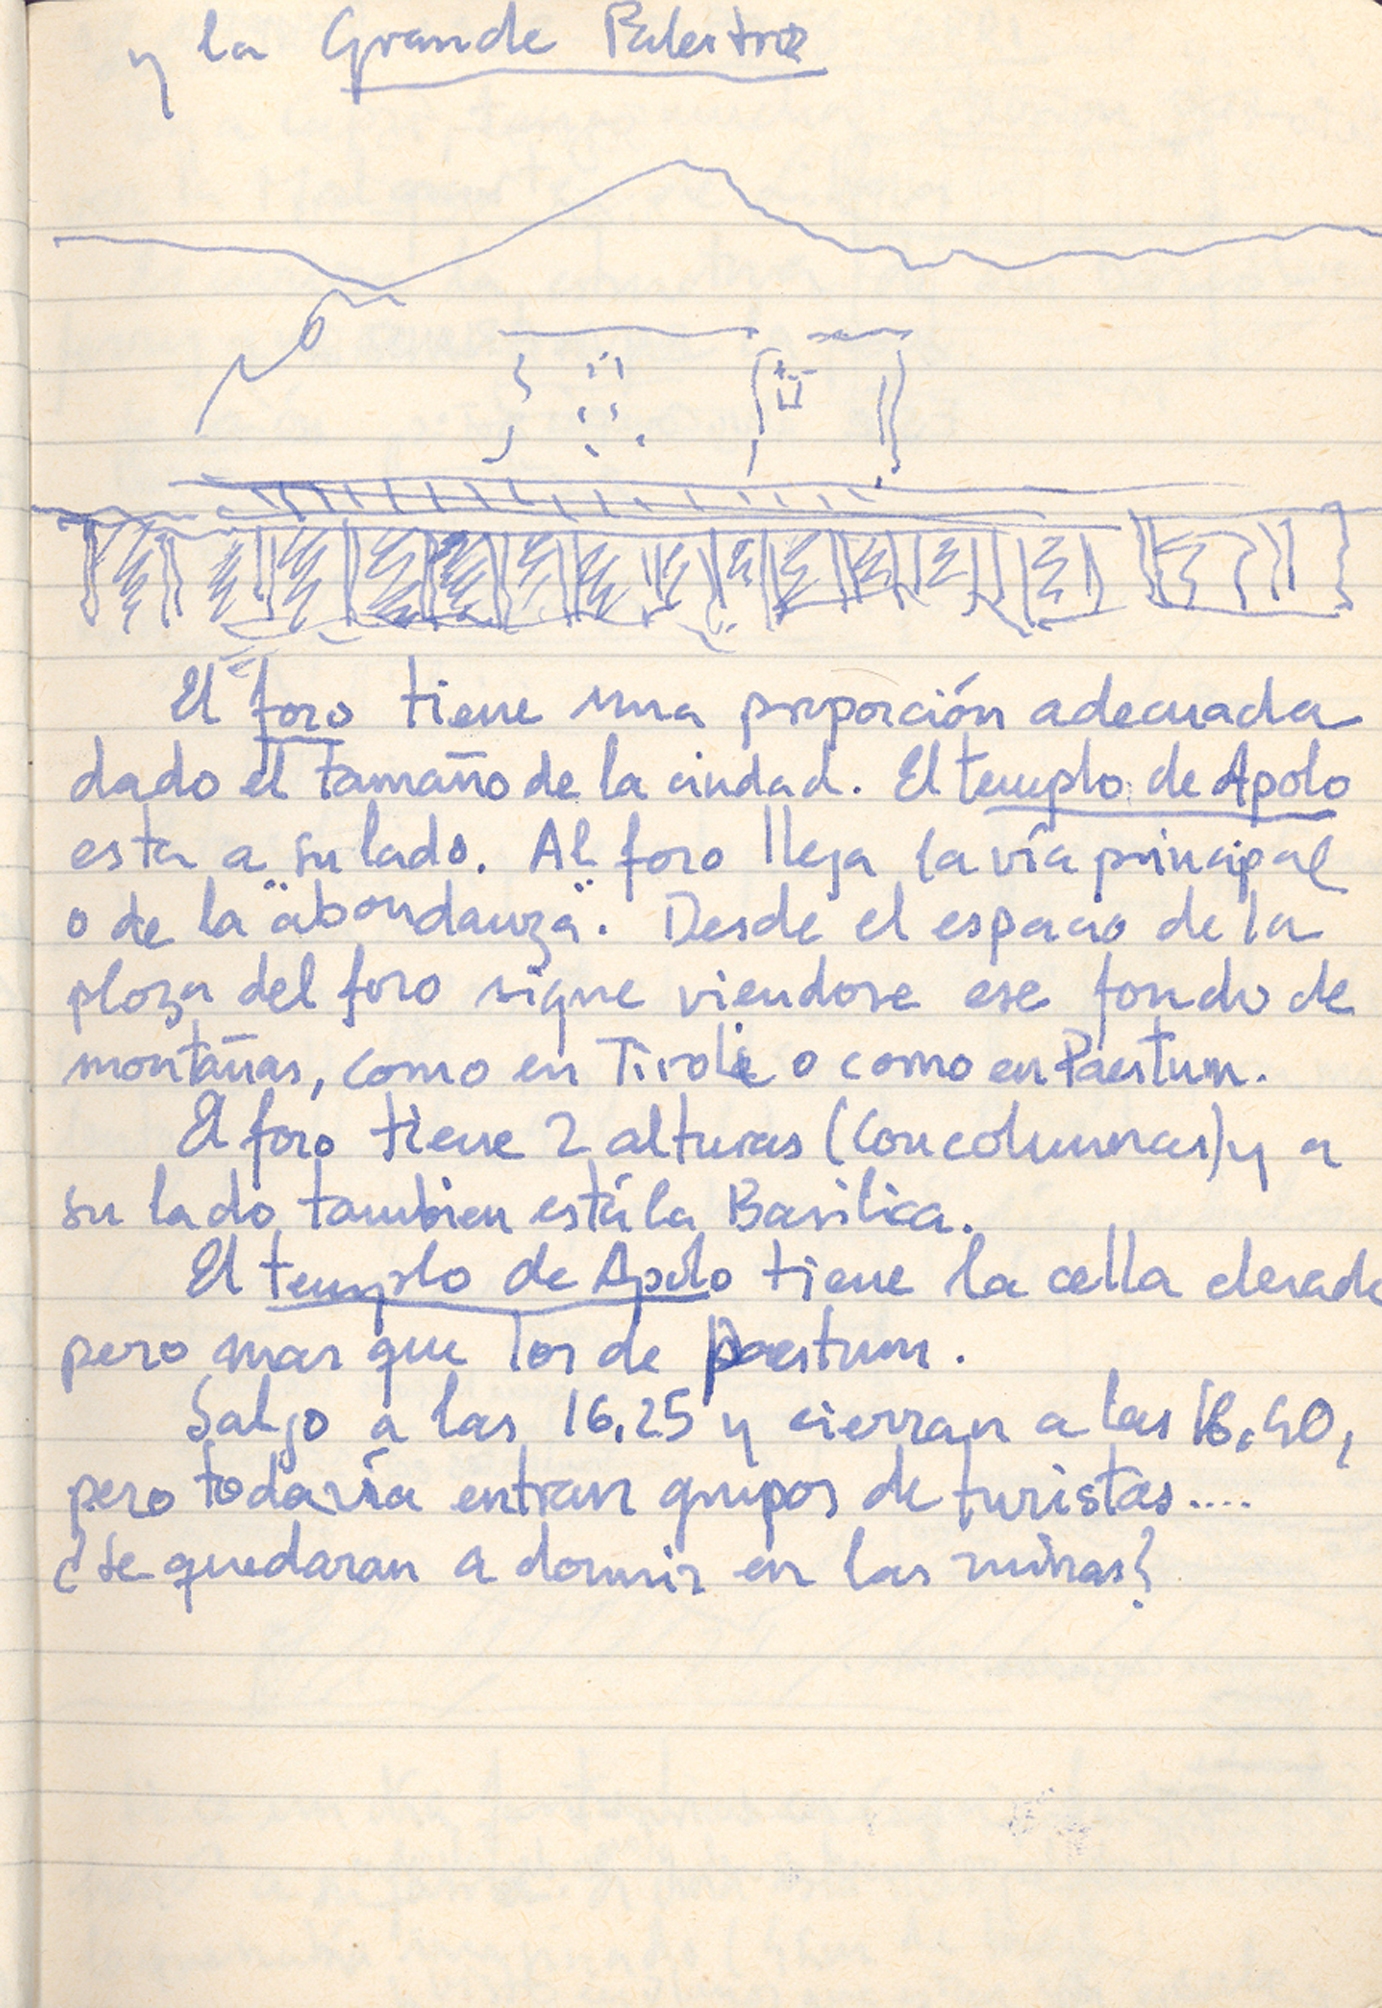 y la Grande Palestra
El foro tiene una proporción adecuada
dado el tamaño de la ciudad. El templo de Apolo
esta a su lado. Al foro llega la vía principal
o de la "abondanza". Desde el espacio de la
plaza del foro sigue viendose ese fondo de
montañas, como en Tivoli o como en Paestum.
El foro tiene 2 alturas (con columnas) y a
su lado tambien está la Basilica.
El templo de Apolo tiene la cella elevada
pero mas que los de Paestum.
Salgo a las 16.25 y cierran a las 16.40,
pero todavía entran grupos de turistas....
¿Se quedaran a dormir en las ruinas?